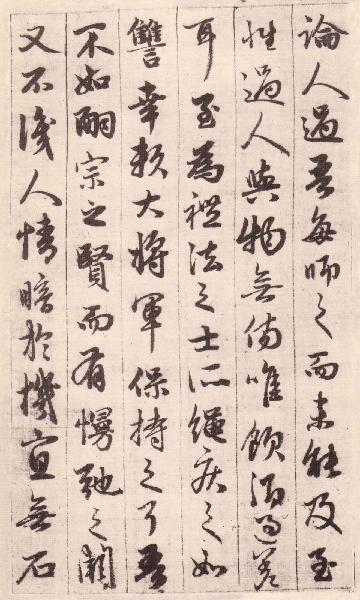 論人過吾每師之而未能及至
性過人與物無傷唯飲酒過差
耳至為禮法之士所繩疾之如
讎幸賴大將軍保持之耳吾
不如嗣宗之賢而有慢弛之闕
又不識人情暗於機宜無石